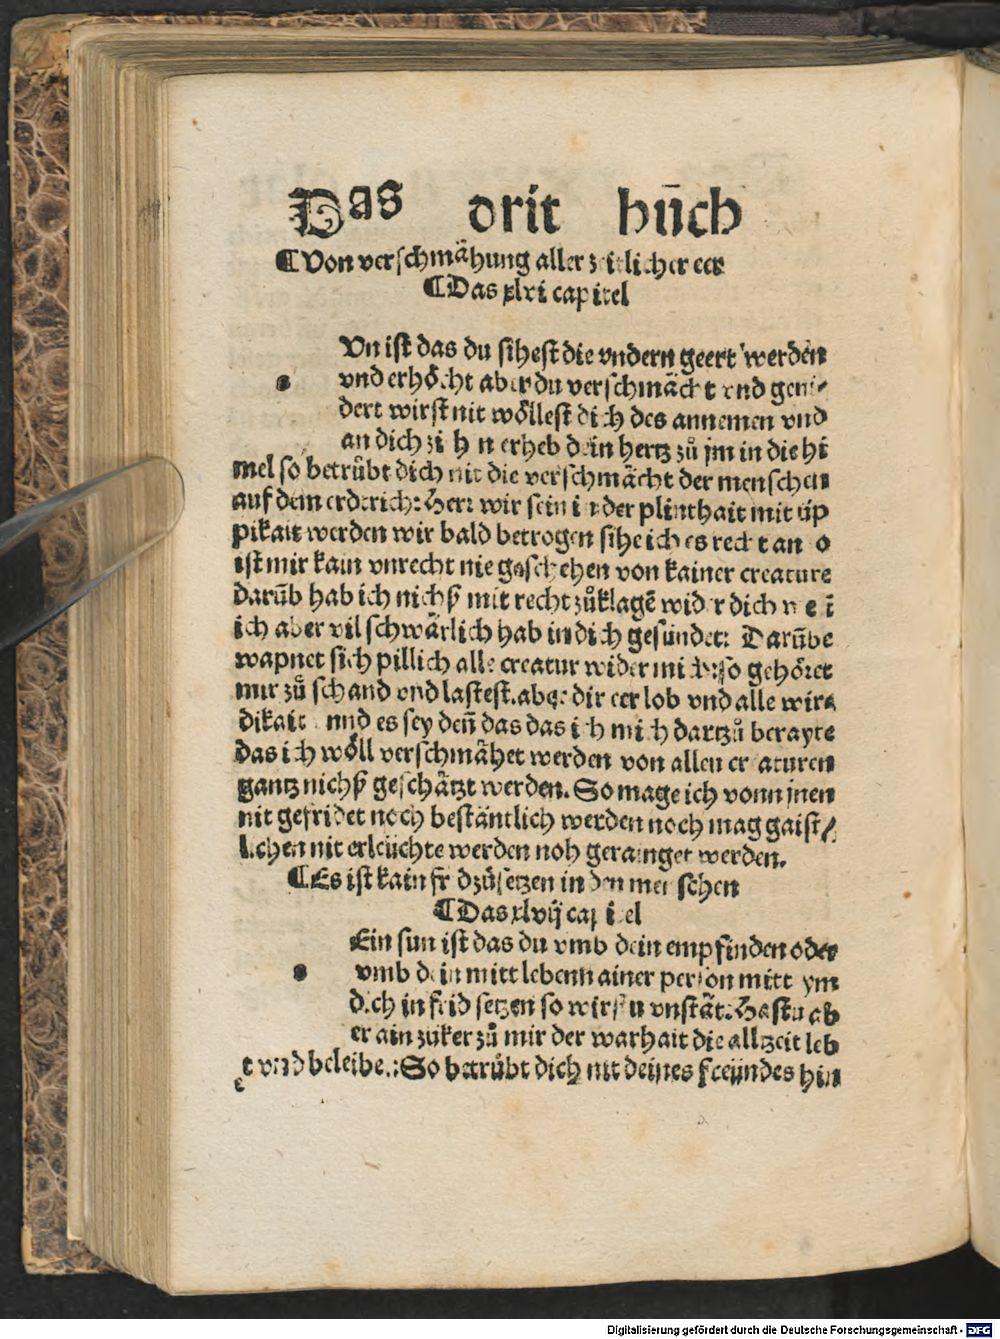 Das drit bůch
¶Von verschmähung aller zeitlicher eer
¶Das xlvi capitel
Vn ist das du sihest die vndern geert werden
vnd erhöcht aber du verschmächt vnd geni⸗
dert wirst nit wöllest dich des annemen vnd
an dich zi h n erheb dein hertz zů jm in die hi
mel so betrůbt dich nit die verschmächt der menschen
auf dem erderich: Herr wir sein in der plinthait mit üp
pikait werden wir bald betrogen sihe ich es recht an o
ist mir kain vnrecht nie geschehen von kainer creature
darūb hab ich nichß mit recht zůklagē wider dich
ich aber vil schwärlich hab in dich gesündet: Darūbe
wapnet sich pillich alle creatur wider mich: so gehöret
mir zů schand vnd lastest. aber dir eer lob vnd alle wir⸗
dikait nnd es sey deñ das das ich mich dartzů berayte
das ich wöll verschmähet werden von allen creaturen
gantz nichß geschätzt werden. So mage ich vonn jnen
nit gefridet noch beständtlich werden noch mag gaist⸗
lichen nit erleüchte werden noh gerainget werden.
¶Es ist kain frid zůsetzen in den menschen
¶Das xlvij capitel
Ein sun ist das du vmb dein empfinden oder
vmb dein mitt lebenn ainer person mitt ym
dich in frid setzen so wirstu vnstät: Hastu ab
er ain zůker zů mir der warhait die alltzeit leb
t vnd beleibe.: So betrůbt dich nit deines freündes hin
e
Digitalisierung gefördert durch die Deutsche Forschungsgemeinschaft - DFG